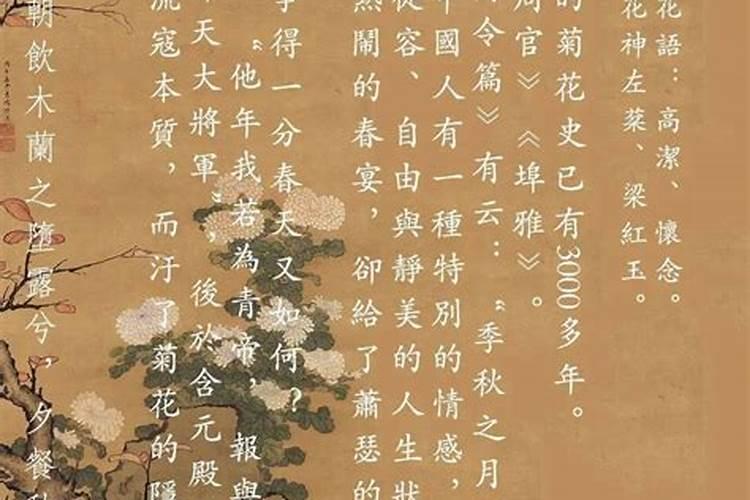 花語：高潔、懷念。
花神左棻、梁紅玉。
的菊花史已有3000多年。
周官》《埤雅》。
令篇》有云：“季秋之月
中國人有一種特別的情感，
從容、自由與靜美的人生狀
熱鬧的春宴，卻給了蕭瑟的
爭得一分春天又如何？
“他年我若為青帝，報與
天大將軍”，後於含元殿
流寇本質，而汙了菊花的隱
朝飲木蘭之墮露兮，夕餐秋